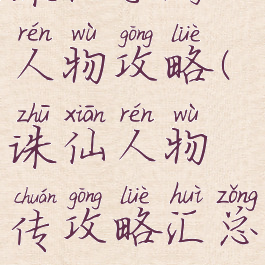 rén wù gōng lüè
人物攻略(
zhū xiān rén wù
诛仙人物
chuán gōng lüè huì zǒng
传攻略汇总